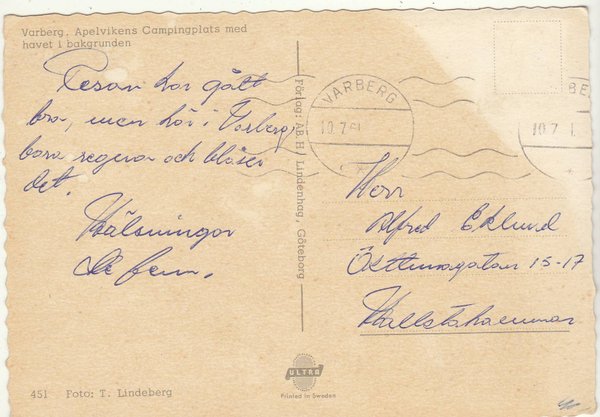 Varberg. Apelvikens Campingplats med
havet i bakgrunden
Resan har gått
bra, men här i Varberg
bara regnar och blåser
det.
Hälsningar
De fem.
Förlag: AB H Lindenhag, Göteborg
VARBERG
10.7.61
10.7.
Herr
Alfred Eklund
15-17
Hallstahammar
ULTRA
Printed in Sweden
451 Foto: T. Lindeberg